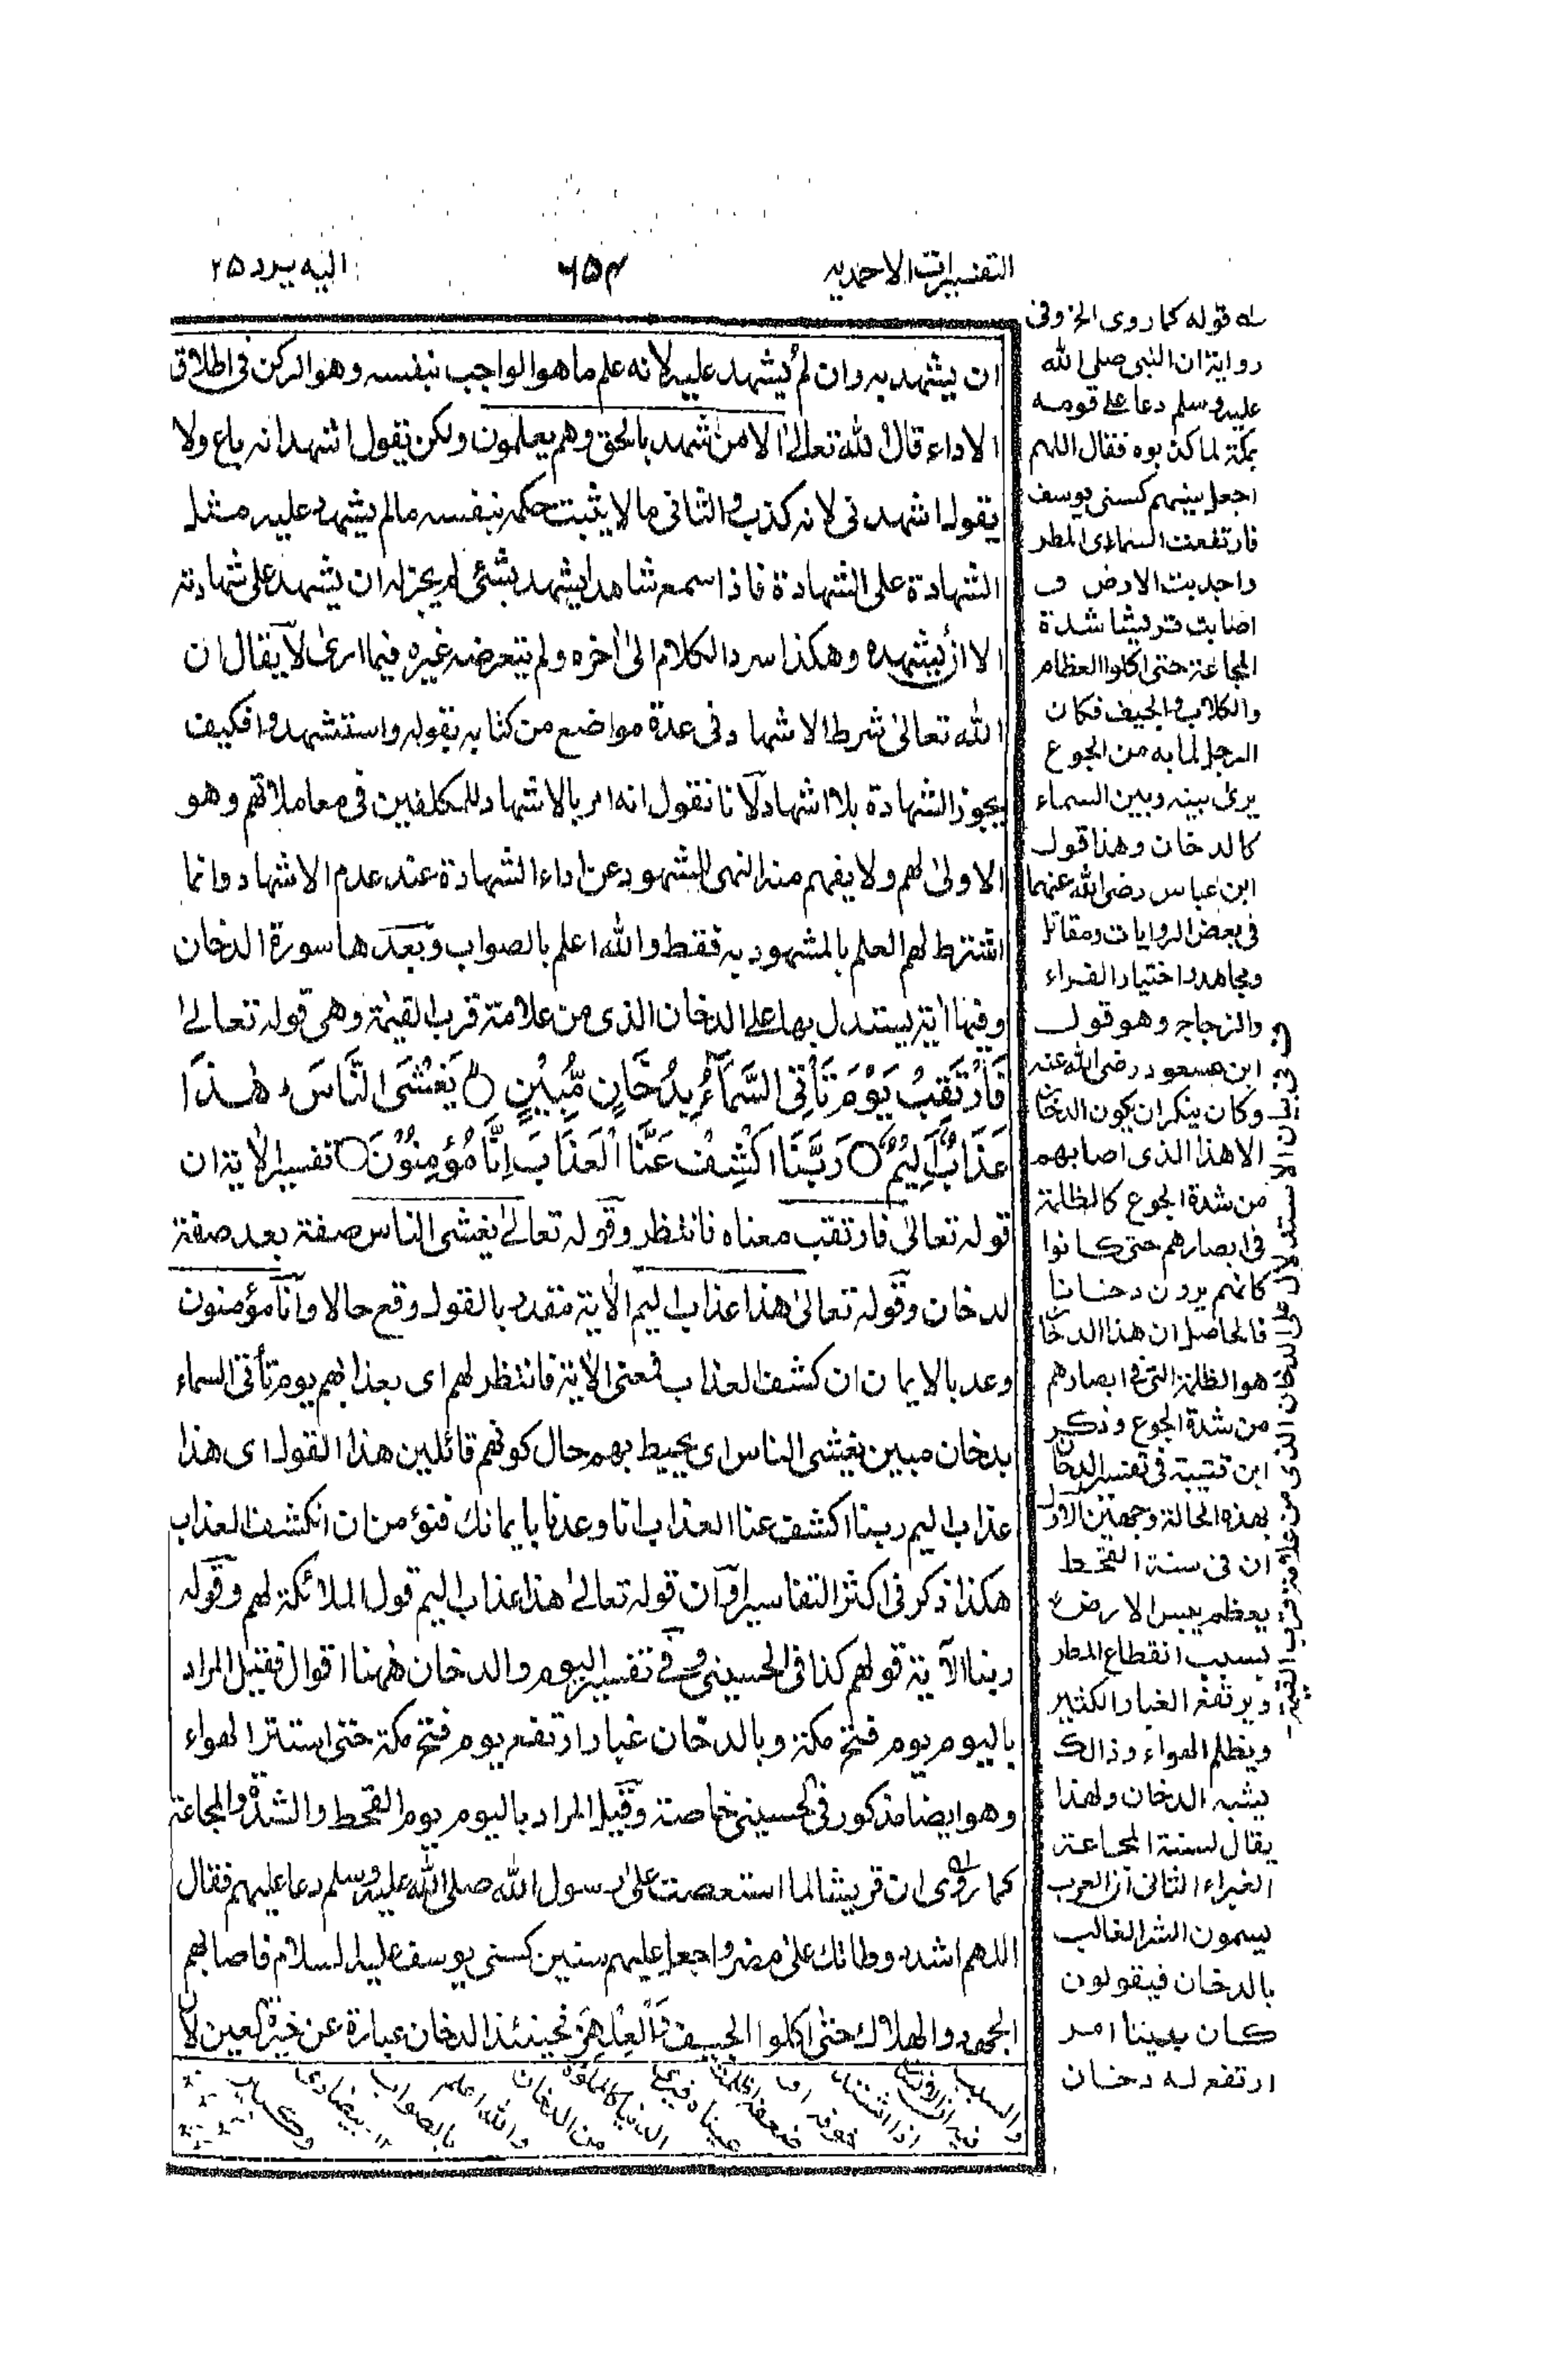 التفسيرات الاحمديه
٦٥٤
اليه يرد ٢٥
ان يشهد به وان لم يشهد عليه لانه علم ما هو الواجب بنفسه وهو الركن فى اطلاق
الاداء قال الله تعالىٰ الا من شهد بالحق وهم يعلمون ولكن يقول اشهد انه باع ولا
يقول اشهدنى لانه كذب والثانى ما لا يثبت حكمه بنفسه مالم يشهد عليه مثل
الشهادة على الشهادة فاذا سمع شاهدا يشهد بشئ لم يجز له ان يشهد على شهادته
الا ان يشهده وهكذا سرد الكلام الىٰ اٰخره ولم يتعرضه غيره فيما ارىٰ لا يقال ان
الله تعالىٰ شرط الاشهاد فى عدة مواضع من كتابه بقوله واستشهدوا فكيف
يجوز الشهادة بلا اشهاد لانا نقول انه امر بالاشهاد للمكلفين فى معاملاتهم وهو
الاولىٰ لهم ولا يفهم منه النهى للشهود عن اداء الشهادة عند عدم الاشهاد وانما
اشترط لهم العلم بالمشهود به فقط والله اعلم بالصواب وبعدها سورة الدخان
وفيها اٰية يستدل بها على الدخان الذى من علامة قرب القيٰمة وهى قوله تعالىٰ
فَارْتَقِبْ يَوْمَ تَأْتِى السَّمَآءُ بِدُخَانٍ مُّبِيْنٍ ○ يَغْشَى النَّاسَ ؕ هٰذَا
عَذَابٌ اَلِيْمٌ ○ رَبَّنَا اكْشِفْ عَنَّا الْعَذَابَ اِنَّا مُؤْمِنُوْنَ ○ تفسير الاٰية ان
قوله تعالىٰ فارتقب معناه فانتظر وقوله تعالىٰ يغشى الناس صفة بعد صفة
لدخان وقوله تعالىٰ هذا عذاب اليم الاٰية مقدر بالقول وقع حالا وانا مؤمنون
وعد بالايمان ان كشف العذاب فمعنى الاٰية فانتظر لهم اى بعذابهم يوم تأتى السماء
بدخان مبين يغشى الناس اى يحيط بهم حال كونهم قائلين هذا القول اى هذا
عذاب اليم ربنا اكشف عنا العذاب انا وعدنا بايمانك فنؤمن ان انكشف العذاب
هكذا ذكر فى اكثر التفاسير او ان قوله تعالىٰ هذا عذاب اليم قول الملائكة لهم وقوله
ربنا الاٰية قولهم كذا فى الحسينى وفى تفسير اليوم والدخان هٰهنا اقوال فقيل المراد
باليوم يوم فتح مكة وبالدخان غبار ارتفع يوم فتح مكة حتى استتر الهواء
وهو ايضا مذكور فى الحسينى خاصة وقيل المراد باليوم يوم القحط والشدة والمجاعة
كما روى ان قريشا لما استعصت علىٰ رسول الله صلى الله عليه وسلم دعا عليهم فقال
اللهم اشدد وطأتك علىٰ مضر واجعل عليهم سنين كسنى يوسف عليه السلام فاصابهم
الجهد والهلاك حتىٰ اكلوا الجيف والعلهز فحينئذ الدخان عبارة عن خيرة العين لان
له قوله كما روى الخ وفى
رواية ان النبى صلى الله
عليه وسلم دعا علىٰ قومه
بمكة لما كذبوه فقال اللهم
اجعل بينهم كسنى يوسف
فارتفعت السماء اى المطر
واجدبت الارض و
اصابت قريشا شدة
المجاعة حتى اكلوا العظام
والكلاب والجيف فكان
الرجل لما به من الجوع
يرىٰ بينه وبين السماء
كالدخان وهذا قول
ابن عباس رضى الله عنهما
فى بعض الروايات ومقاتل
ومجاهد واختيار الفراء
والزجاج وهو قول
ابن مسعود رضى الله عنه
وكان ينكر ان يكون الدخان
الا هذا الذى اصابهم
من شدة الجوع كالظلمة
فى ابصارهم حتى كانوا
كانهم يرون دخانا
فالحاصل ان هذا الدخان
هو الظلمة التى فى ابصارهم
من شدة الجوع وذكر
ابن قتيبة فى تفسير الدخان
بهذه الحالة وجهين الاول
ان فى سنة القحط
يعظم يبس الارض
بسبب انقطاع المطر
ويرتفع الغبار الكثير
ويظلم الهواء وذالك
يشبه الدخان ولهذا
يقال لسنة المجاعة
الغبراء الثانى ان العرب
يسمون الشر الغالب
بالدخان فيقولون
كان بيننا امر
ارتفع له دخان
والسبب
فيه ان الانسان
اذا اشتد
خوفه او
ضعفه اظلمت
عيناه فيرى
الدنيا كالمملوة
من الدخان
والله اعلم
بالصواب
١٢ بيضاوى
فى بيان الاستدلال على الدخان الذى من علامة قرب القيٰمة